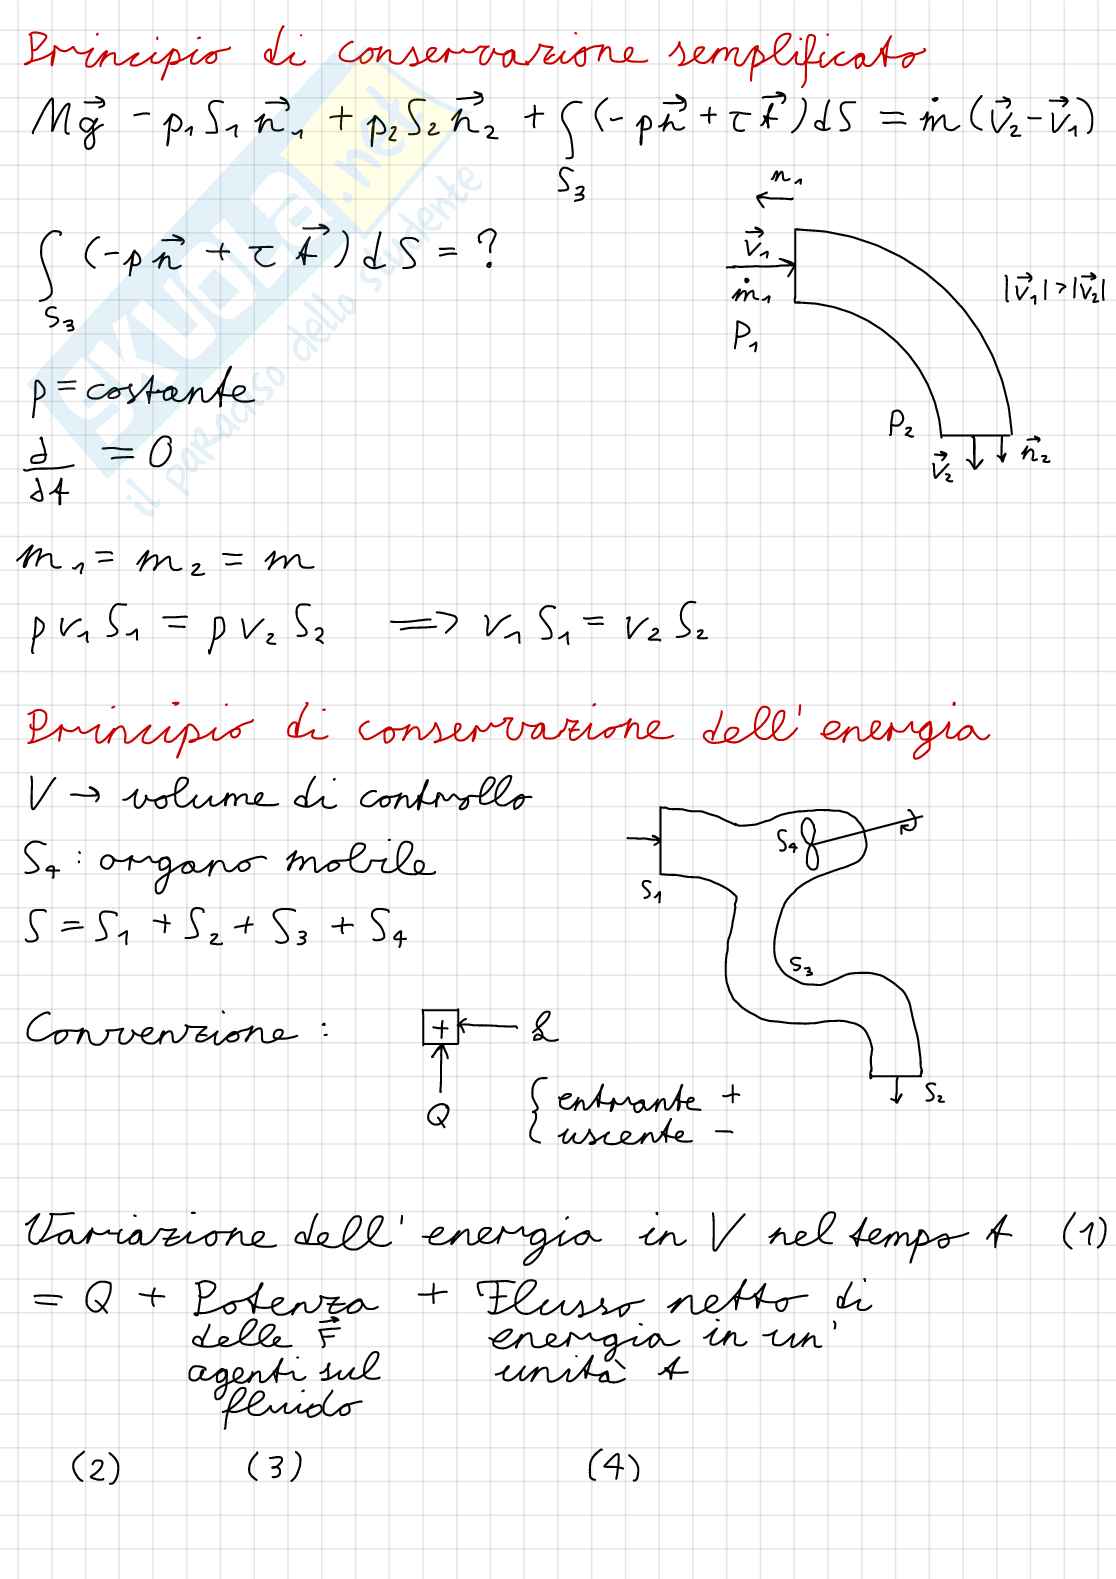 Principio di conservazione semplificato
M\vec{g} - p₁S₁\vec{n}₁ + p₂S₂\vec{n}₂ + ∫_{S₃} (-p\vec{n} + τ\vec{t}) dS = \dot{m}(\vec{v}₂ - \vec{v}₁)
n₁
∫_{S₃} (-p\vec{n} + τ\vec{t}) dS = ?
\vec{v}₁
\dot{m}₁
|\vec{v}₁| > |\vec{v}₂|
P₁
p = costante
P₂
\vec{v}₂ \vec{n}₂
d/dt = 0
m₁ = m₂ = m
p v₁ S₁ = p v₂ S₂ ⟹ v₁ S₁ = v₂ S₂
Principio di conservazione dell'energia
V → volume di controllo
S₄ : organo mobile
S₄
S₁
S = S₁ + S₂ + S₃ + S₄
S₃
Convenzione : + ← L
Q
{ entrante +
uscente -
S₂
Variazione dell'energia in V nel tempo t (1)
= Q + Potenza + Flusso netto di
delle \vec{F} energia in un'
agenti sul unità t
fluido
(2) (3) (4)
SKUOLA.net
il paradiso dello studente